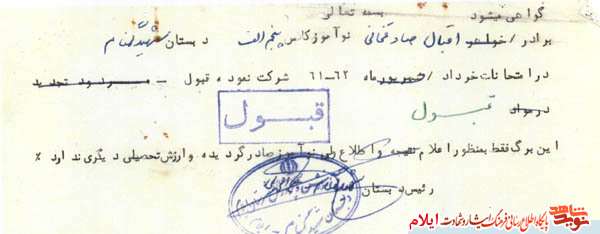 بسمه تعالی
گواهی میشود
برادر/خواهر اقبال صادقخانی نوآموز کلاس پنجم الف دبستان شهید گمنام
در امتحانات خرداد/شهریور ماه ۶۲-۶۱ شرکت نموده قبول - مردود تجدید
در مواد قبول
قبول
این برگ فقط بمنظور اعلام نتیجه و اطلاع ولی نوآموز صادر گردیده و ارزش تحصیلی دیگری ندارد ٪
رئیس دبستان
شاهد
نوید
پایگاه اطلاع رسانی فرهنگ ایثار و شهادت ایلام